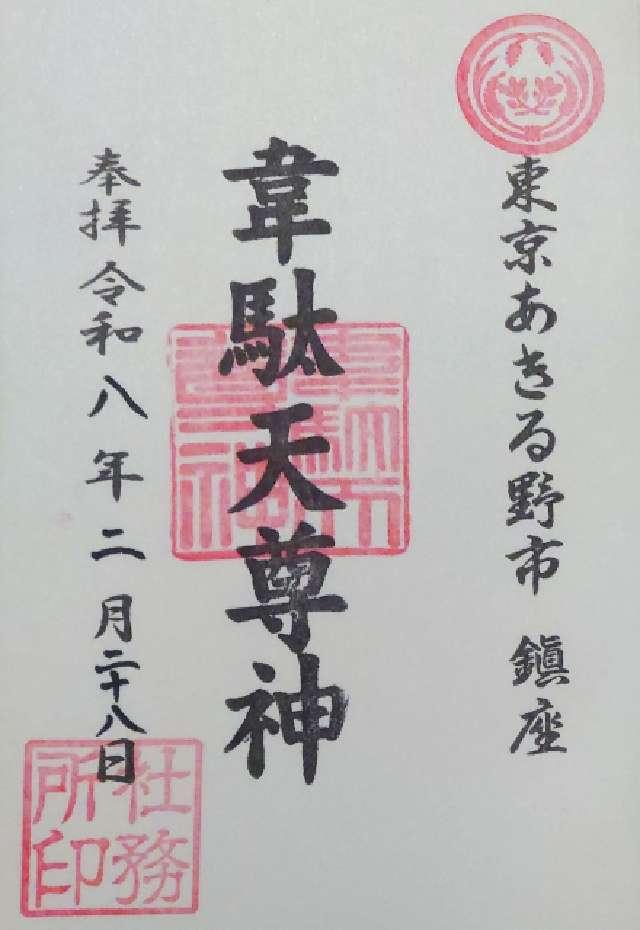 東京あきる野市 鎮座
韋駄天尊神
奉拝 令和八年二月二十八日
社務
所印